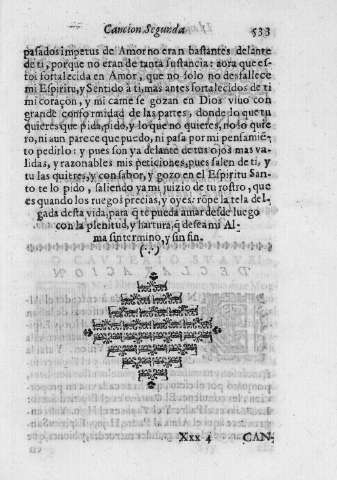 Cancion Segunda 533
pasados impetus de Amor no eran bastantes delante
de ti, porque no eran de tanta sustancia: aora que es-
toi fortalecida en Amor, que no solo no desfallece
mi Espiritu, y Sentido à ti, mas antes fortalecidos de ti
mi coraçon, y mi carne se gozan en Dios vivo con
grande conformidad de las partes, donde lo que tu
quieres que pida, pido, y lo que no quieres, no lo quie-
ro, ni aun parece que puedo, ni pasa por mi pensamiē-
to pedirlo: y pues son ya delante de tus ojos mas va-
lidas, y razonables mis peticiones, pues salen de ti, y
tu las quieres, y con sabor, y gozo en el Espiritu San-
to te lo pido, saliendo ya mi juizio de tu rostro, que
es quando los ruegos precias, y oyes: rōpe la tela del-
gada desta vida, para q̃ te pueda amar desde luego
con la plenitud, y hartura, q̃ desea mi Al-
ma sin termino, y sin fin.
(∴)
Xxx 4 CAN-